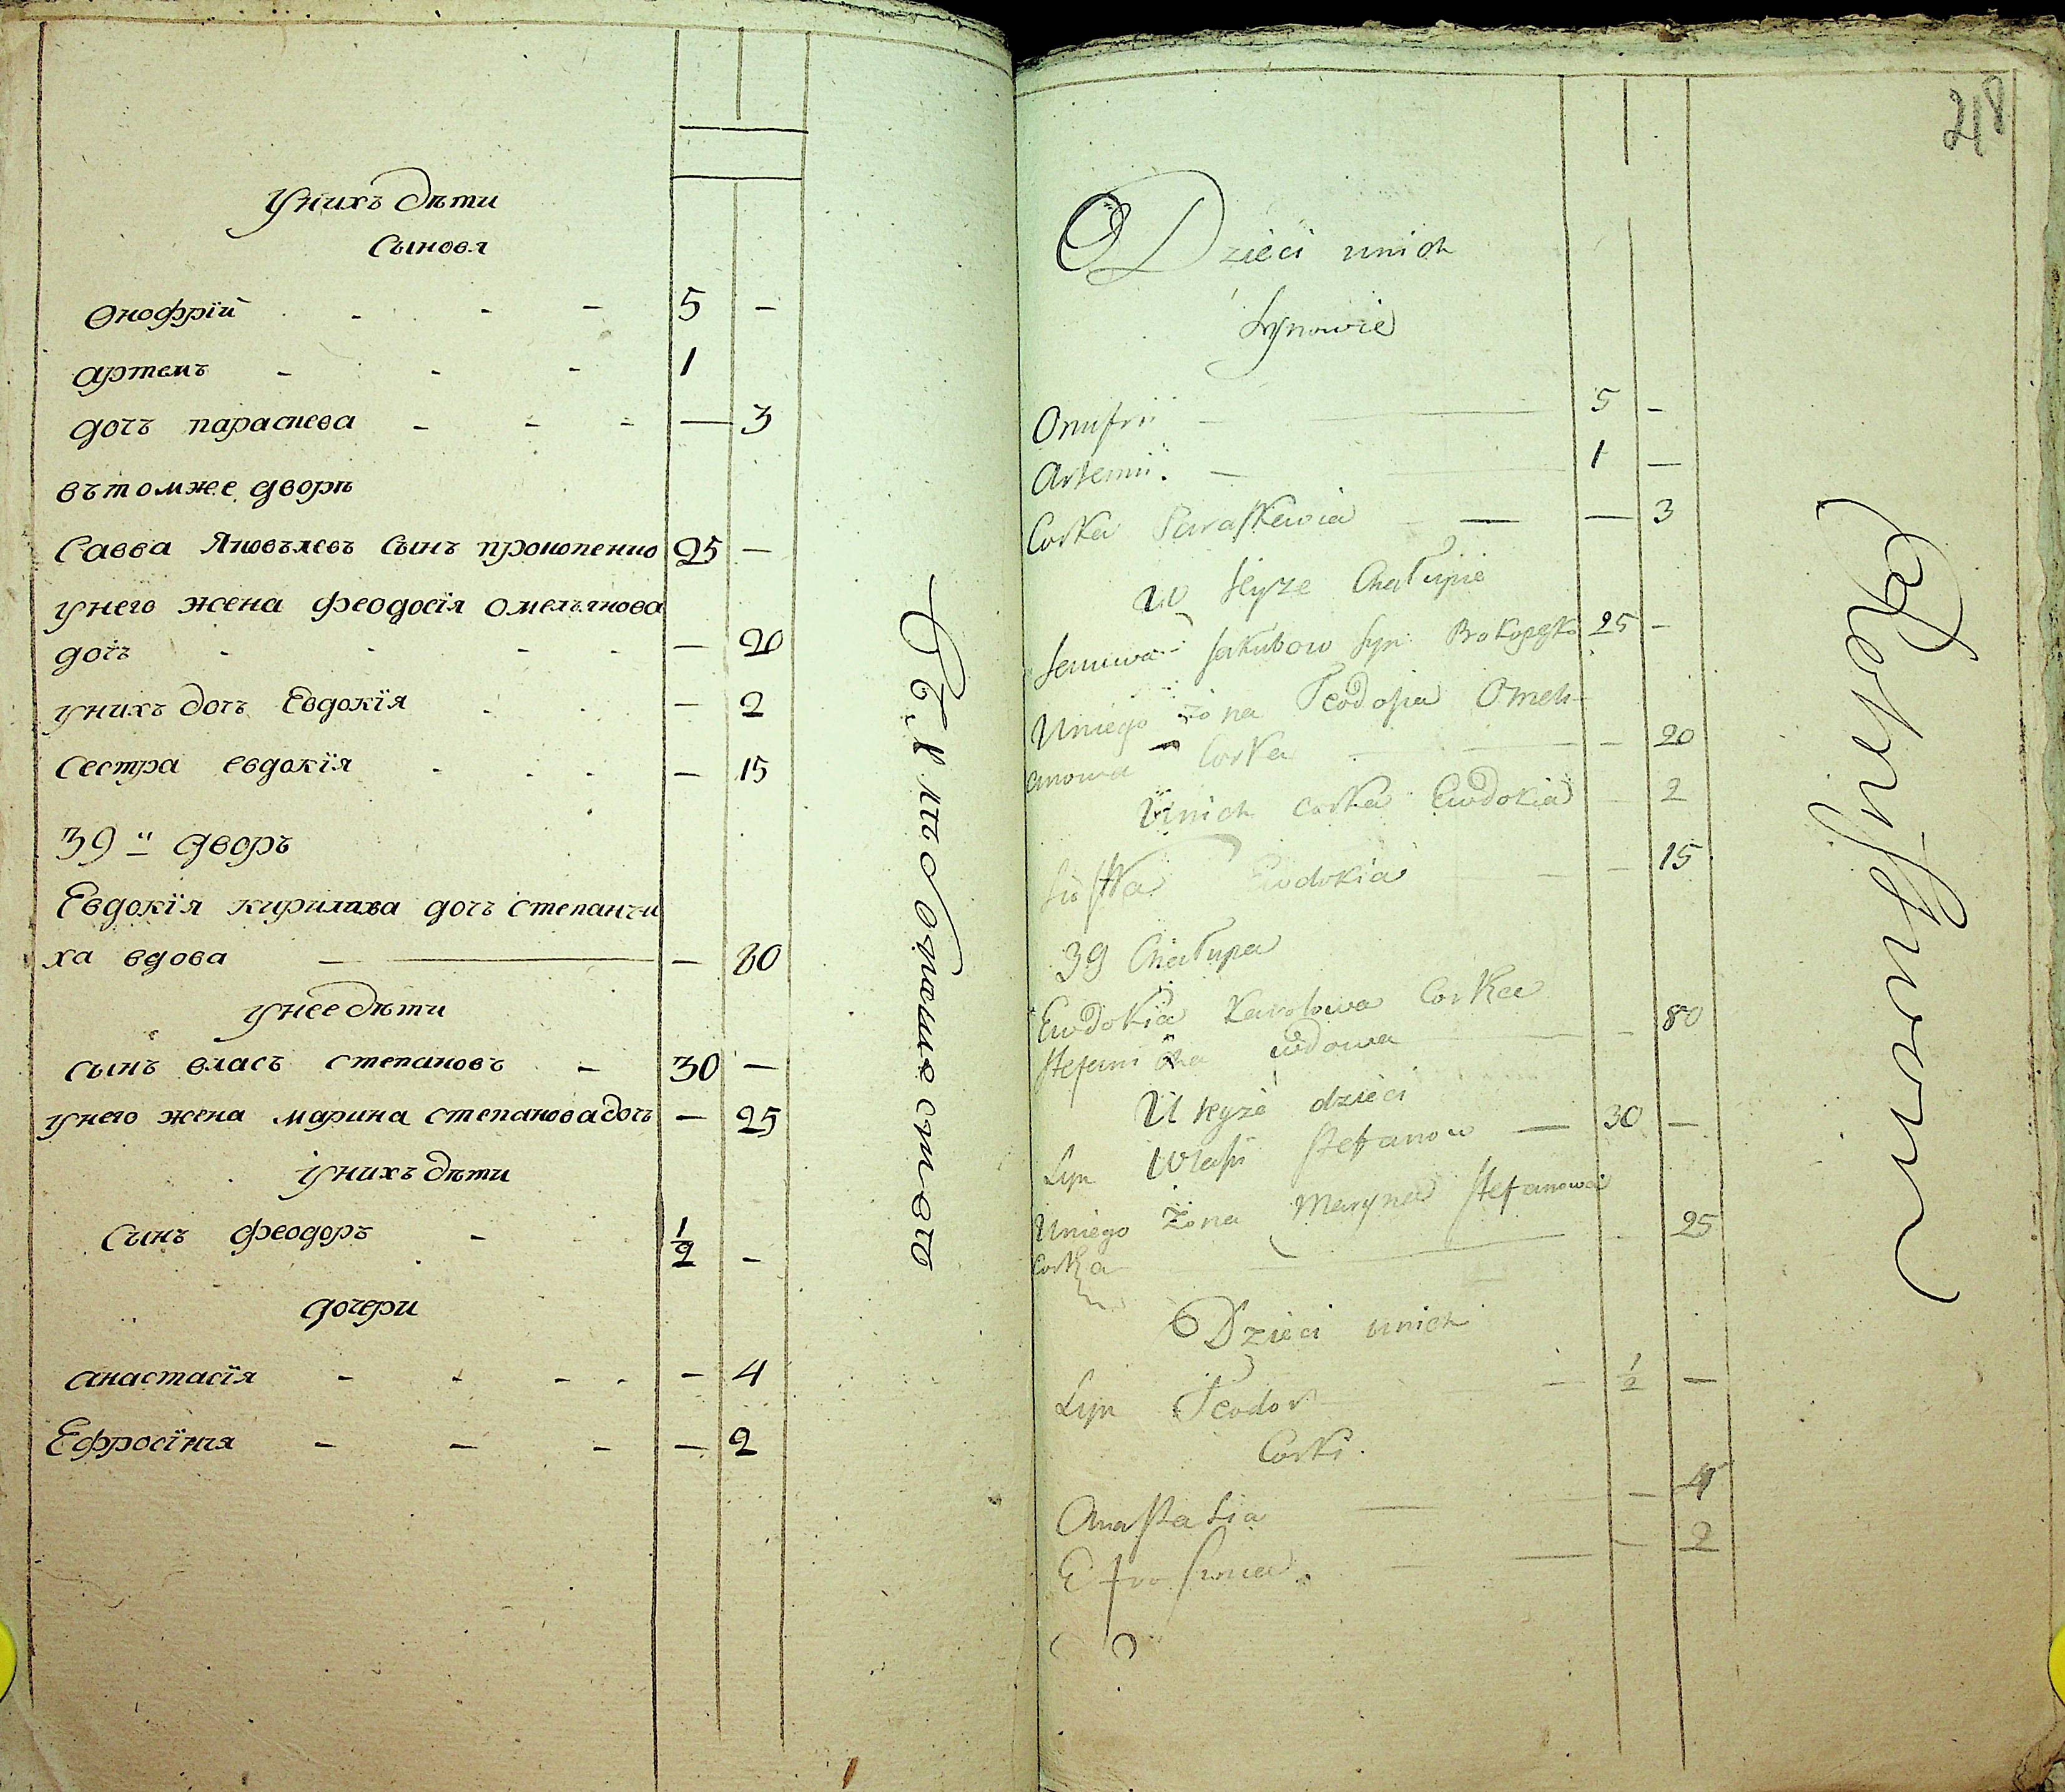 Унихъ дѣти
Сыновя
Онофрій - - - 5 -
артемъ - - - 1
дочъ параскева - - - — 3
вътомже дворѣ
Савва Яковълевъ Сынъ прокопенко 25 —
унего жена феодосїя Омелъянова
дочъ - - - - — 20
унихъ дочъ Евдокїя - - — 2
Сестра евдокїя - - - — 15
39 й дворъ
Евдокїя кирилова дочъ Степанчи
ха вдова — — — 80
унее дѣти
сынъ власъ степановъ - 30 —
унего жена марина степановадочъ — 25
унихъ дѣти
Сынъ феодоръ - 1/2 -
дочери
анастасїя - - - - — 4
Ефросїнїя - - - — 2
218
Dzieci unich
Synowie
Onufrii — — 5 -
Artemii. — — 1 —
Corka Paraskewia — — 3
W teyze Chałupie
Jakubow Syn Prokopęko 25 -
Uniego żona Teodosia Omeli-
anowa Corka — — — 20
Unich corka Ewdokia — 2
Siostra Ewdokia — — 15
39 Chałupa
Ewdokia Karolowa Corka
Stefani cha wdowa — — 80
U teyże dzieci
Syn Własii Stefanow — 30 —
Uniego żona Maryna Stefanowa
corka — 25
Dzieci unich
Syn Teodor — 1/2 —
Corki.
Anastasia — — — 4
Efrosinia. — — — 2